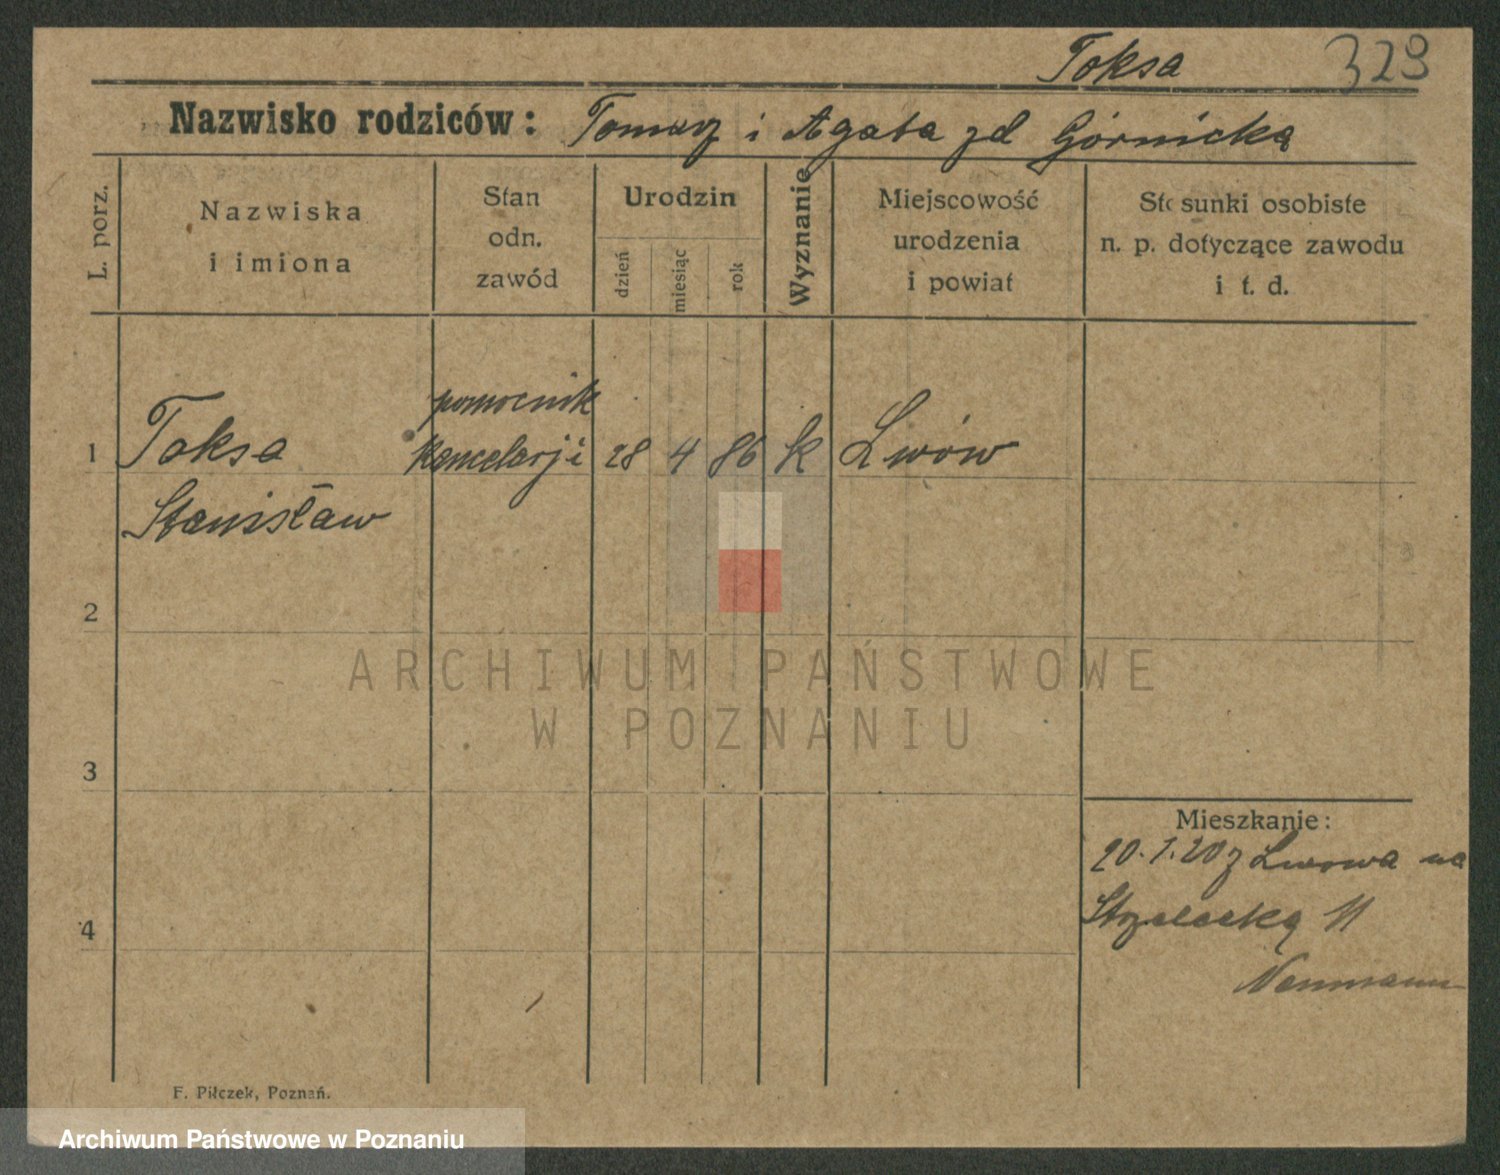 Toksa 329
Nazwisko rodziców: Tomasz i Agata zd Górnicka
L. porz.
Nazwiska
i imiona
Stan
odn.
zawód
Urodzin
dzień
miesiąc
rok
Wyznanie
Miejscowość
urodzenia
i powiat
Stosunki osobiste
n. p. dotyczące zawodu
i t. d.
1 Toksa pomocnik kancelarji 28 4 86 k Lwów
Stanisław
2
ARCHIWUM PAŃSTWOWE
W POZNANIU
3
Mieszkanie:
20.1.20 z Lwowa na
Strzelecką 11
4
Neumann
F. Piłczek, Poznań.
Archiwum Państwowe w Poznaniu